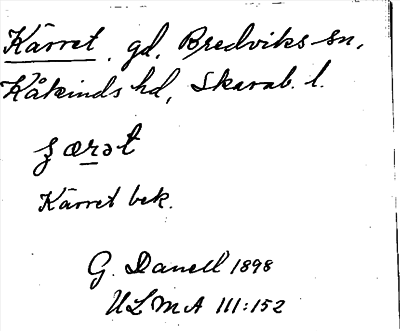 Kärret. gd. Bredviks sn,
Kåkinds hd, Skarab. l.
ʒærət
Kärret bek.
G. Danell 1898
ULMA 111:152